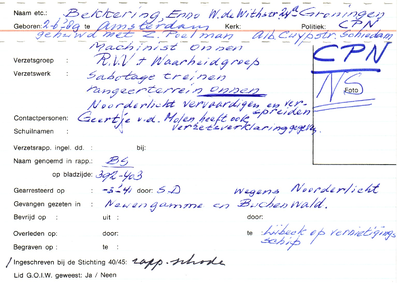 Naam etc.: Bekkering, Enno W. de Withstr 24a Groningen
Geboren: 2-6-'09 te Amsterdam Kerk: Politiek: CPN
gehuwd met Z. Poelman Alb. Cuypstr. Schiedam
Machinist Onnen
CPN
Verzetsgroep: R.VV + Waarheidgroep
Verzetswerk: Sabotage treinen
NS
rangeerterrein Onnen
Foto
Noorderlicht vervaardigen en verspreiden
Contactpersonen: Geertje v.d. Molen heeft ook
Schuilnaam : verzetsverklaring gegeven.
Verzetsrapp. ingel. dd. : bij:
Naam genoemd in rapp.: BS
op bladzijde: 392-403
Gearresteerd op : -3-'41 door: S-D wegens Noorderlicht
Gevangen gezeten in : Neuengamme en Buchenwald.
Bevrijd op : uit : door:
Overleden op : door: te: Lübeck op vernietigings
schip
Begraven op : te :
Ingeschreven bij de Stichting 40/45: rapp.
Lid G.O.I.W. geweest: Ja / Neen